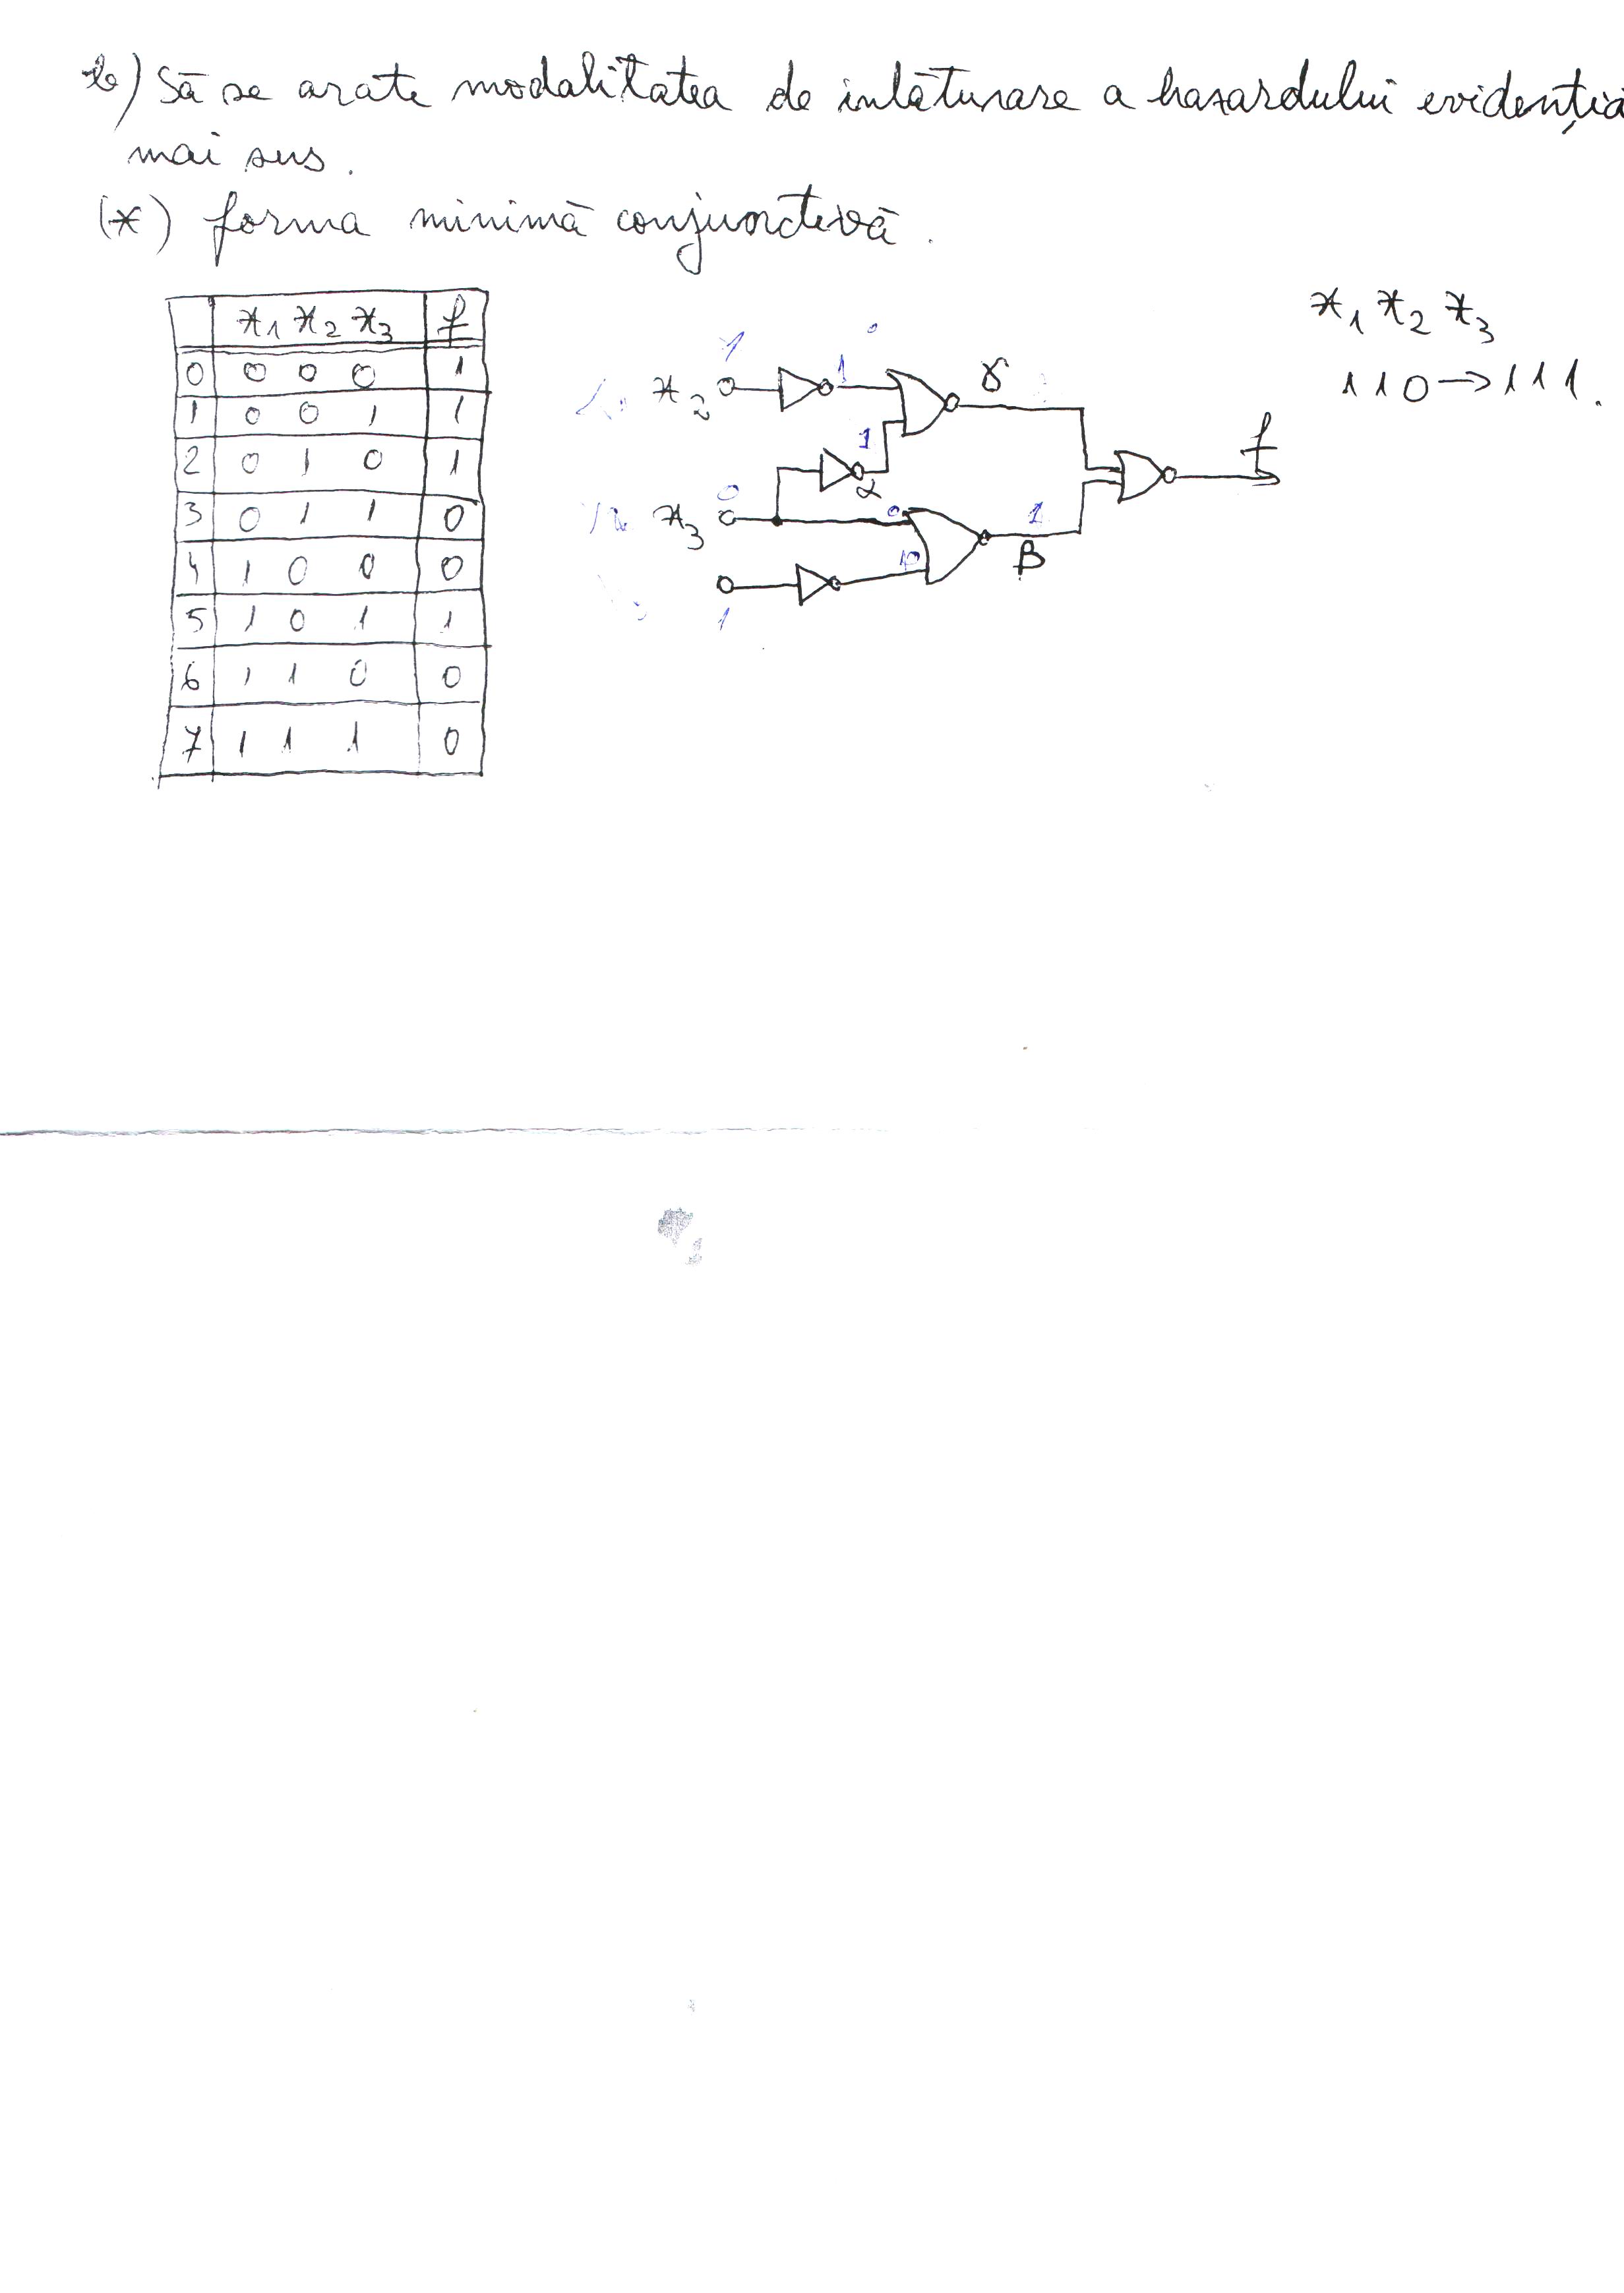 b) Să se arate modalitatea de inlăturare a hazardului evidenția
mai sus.
(*) forma minimă conjunctivă.
x1 x2 x3 f
0 0 0 0 1
1 0 0 1 1
2 0 1 0 1
3 0 1 1 0
4 1 0 0 0
5 1 0 1 1
6 1 1 0 0
7 1 1 1 0
x1 x2 x3
110→111.
1
0
x2
1
γ
f
1
α
0
x3
0
1
β
1